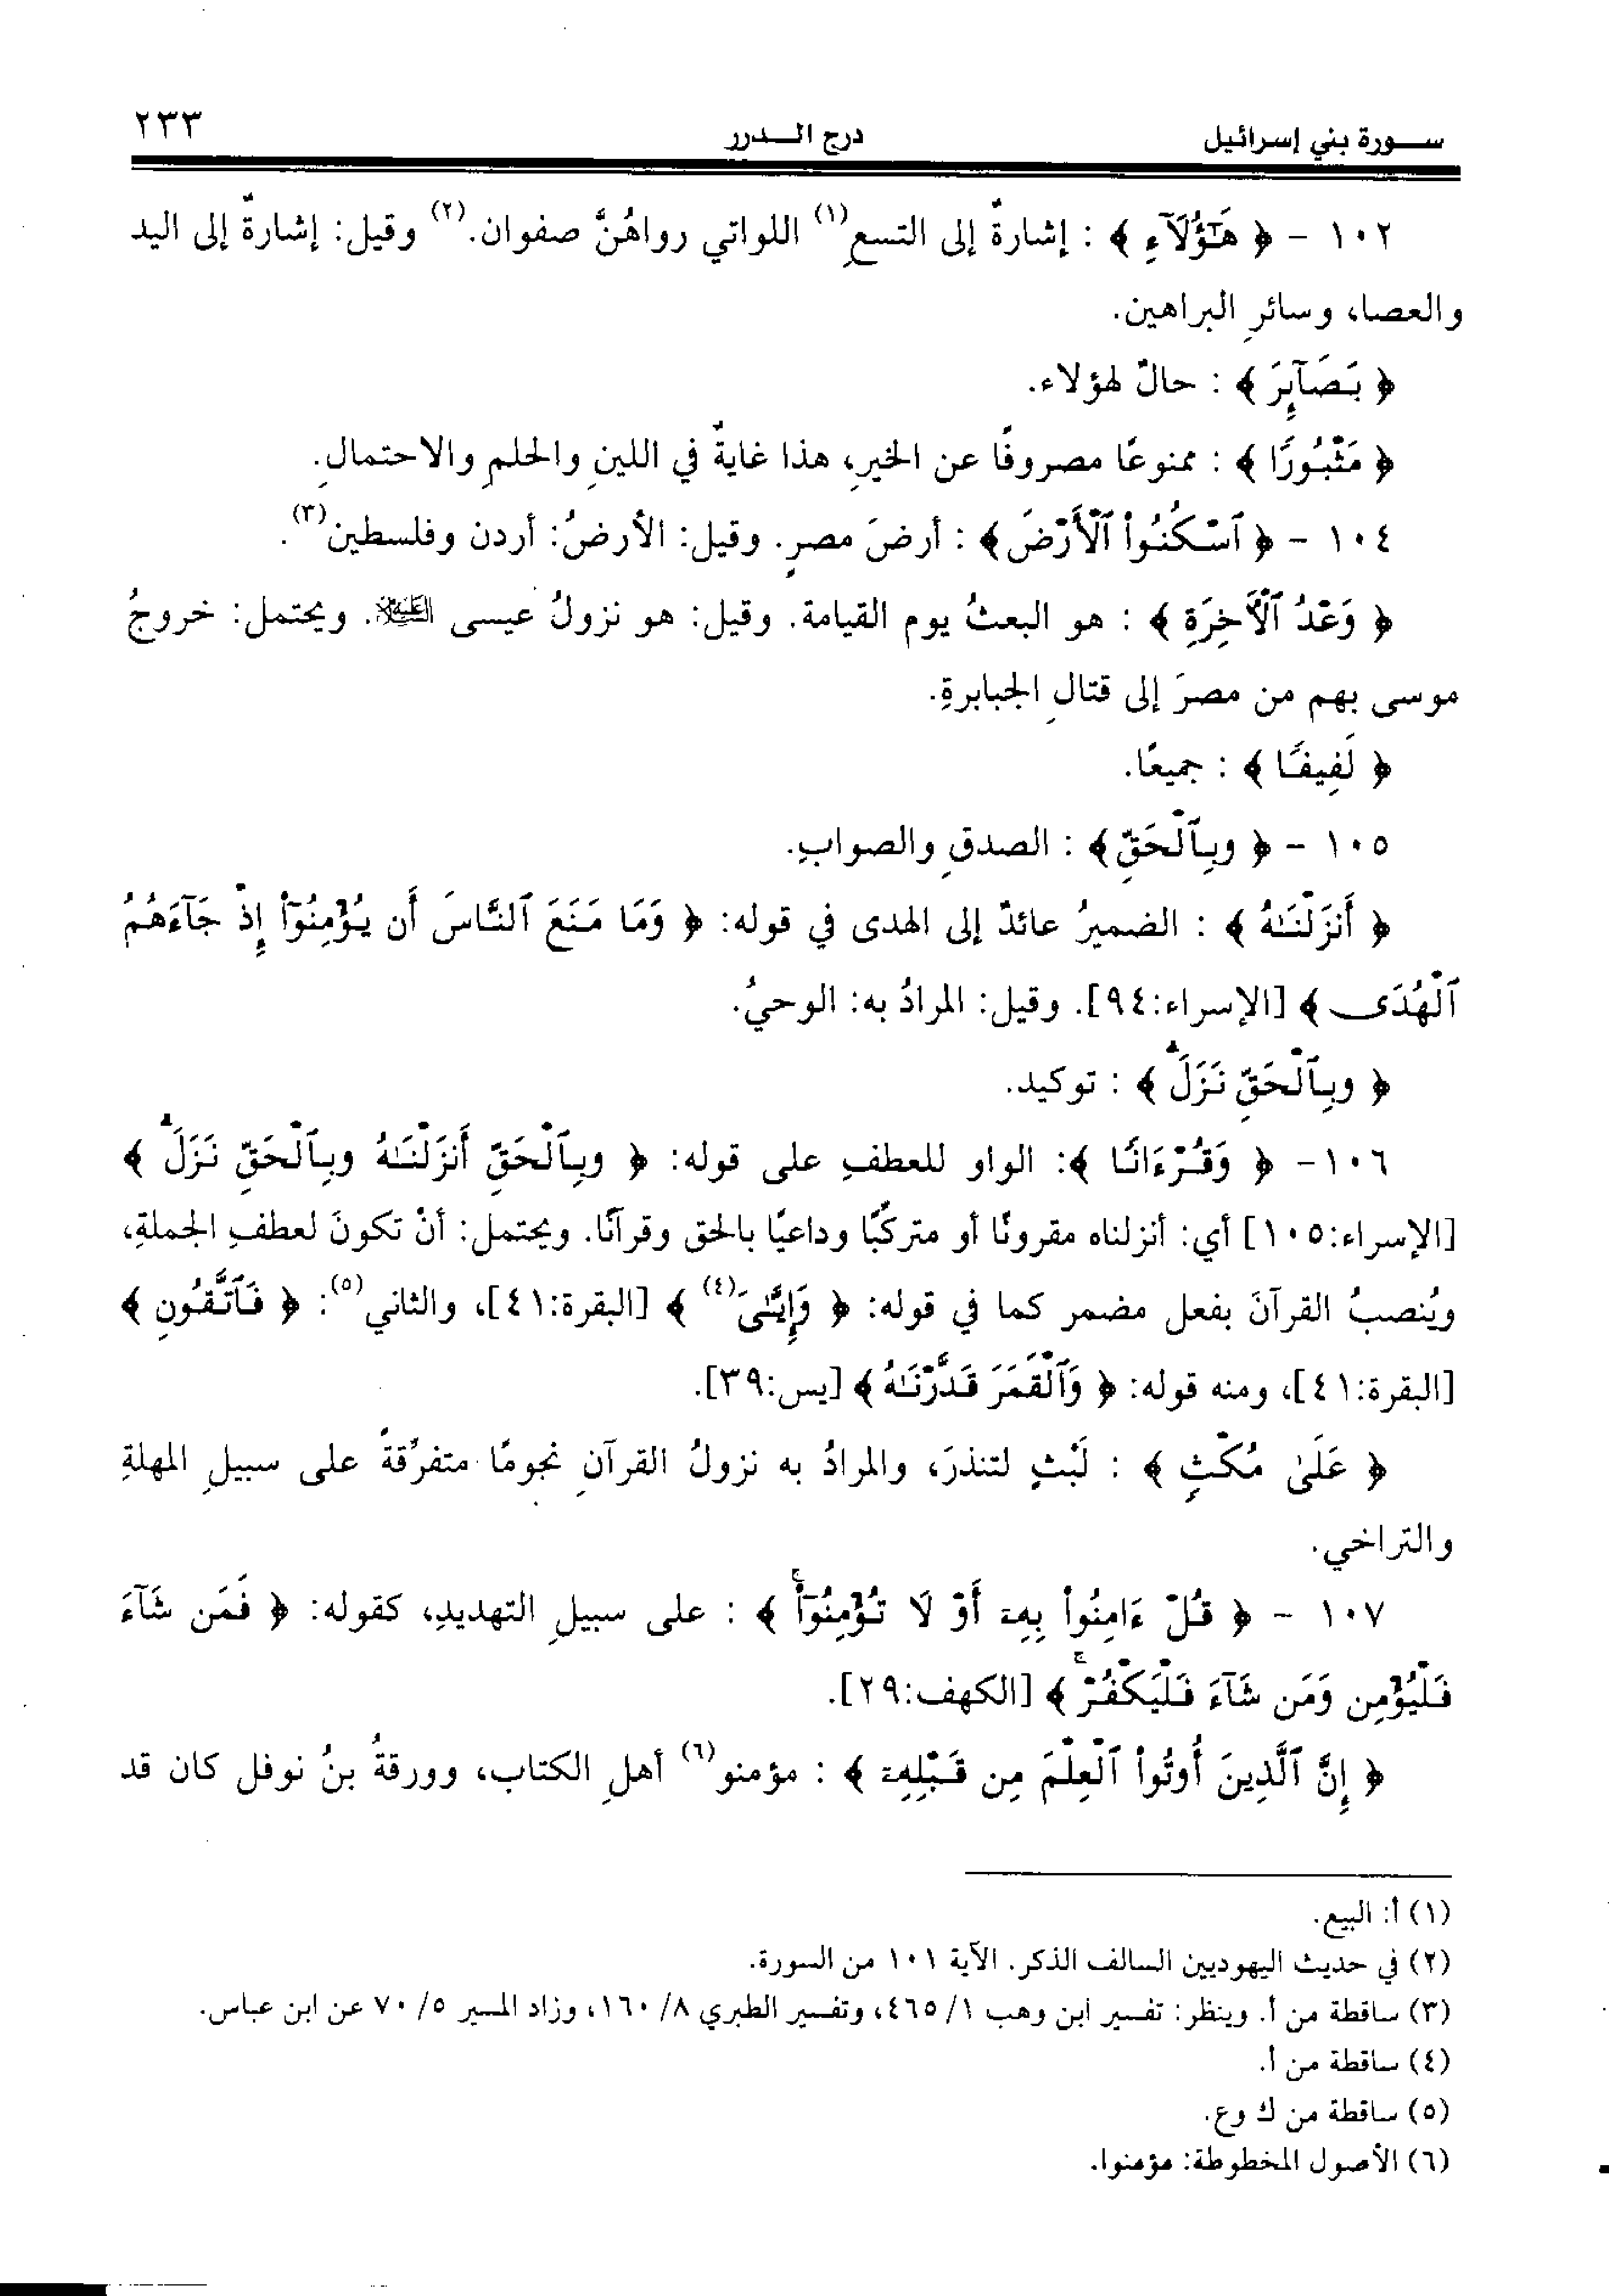 سـورة بني إسرائيل درج الـدرر ٢٣٣
١٠٢ - ﴿ هَٰٓؤُلَآءِ ﴾ : إشارةٌ إلى التسعِ(١) اللواتي رواهُنَّ صفوان.(٢) وقيل: إشارةٌ إلى اليد
والعصا، وسائرِ البراهين.
﴿ بَصَآئِرَ ﴾ : حالٌ لهؤلاء.
﴿ مَثْبُورًا ﴾ : ممنوعًا مصروفًا عن الخيرِ، هذا غايةٌ في اللينِ والحلمِ والاحتمالِ.
١٠٤ - ﴿ ٱسْكُنُوا۟ ٱلْأَرْضَ﴾ : أرضَ مصرٍ. وقيل: الأرضُ: أردن وفلسطين(٣).
﴿ وَعْدُ ٱلْأَخِرَةِ ﴾ : هو البعثُ يوم القيامة. وقيل: هو نزولُ عيسى عليه السلام. ويحتمل: خروجُ
موسى بهم من مصرَ إلى قتالِ الجبابرةِ.
﴿ لَفِيفًا ﴾ : جميعًا.
١٠٥ - ﴿ وبِٱلْحَقِّ﴾ : الصدقِ والصوابِ.
﴿ أَنزَلْنَٰهُ ﴾ : الضميرُ عائدٌ إلى الهدى في قوله: ﴿ وَمَا مَنَعَ ٱلنَّاسَ أَن يُؤْمِنُوٓا۟ إِذْ جَآءَهُمُ
ٱلْهُدَىٰ ﴾ [الإسراء:٩٤]. وقيل: المرادُ به: الوحيُ.
﴿ وبِٱلْحَقِّ نَزَلَ ﴾ : توكيد.
١٠٦- ﴿ وَقُرْءَانًا ﴾: الواو للعطفِ على قوله: ﴿ وبِٱلْحَقِّ أَنزَلْنَٰهُ وبِٱلْحَقِّ نَزَلَ ﴾
[الإسراء:١٠٥] أي: أنزلناه مقرونًا أو متركّبًا وداعيًا بالحق وقرآنًا. ويحتمل: أنْ تكونَ لعطفِ الجملةِ،
ويُنصبُ القرآنَ بفعل مضمر كما في قوله: ﴿ وَإِيَّٰىَ(٤) ﴾ [البقرة:٤١]، والثاني(٥): ﴿ فَٱتَّقُونِ ﴾
[البقرة:٤١]، ومنه قوله: ﴿ وَٱلْقَمَرَ قَدَّرْنَٰهُ ﴾ [يس:٣٩].
﴿ عَلَىٰ مُكْثٍ ﴾ : لَبْثٍ لتنذرَ، والمرادُ به نزولُ القرآنِ نجومًا متفرّقةً على سبيلِ المهلةِ
والتراخي.
١٠٧ - ﴿ قُلْ ءَامِنُوا۟ بِهِۦٓ أَوْ لَا تُؤْمِنُوٓا۟ ﴾ : على سبيلِ التهديدِ، كقوله: ﴿ فَمَن شَآءَ
فَلْيُؤْمِن وَمَن شَآءَ فَلْيَكْفُرْ ﴾ [الكهف:٢٩].
﴿ إِنَّ ٱلَّذِينَ أُوتُوا۟ ٱلْعِلْمَ مِن قَبْلِهِۦٓ ﴾ : مؤمنو(٦) أهلِ الكتاب، وورقةُ بنُ نوفل كان قد
(١) أ: البيع.
(٢) في حديث اليهوديين السالف الذكر. الآية ١٠١ من السورة.
(٣) ساقطة من أ. وينظر: تفسير ابن وهب ١/ ٤٦٥، وتفسير الطبري ٨/ ١٦٠، وزاد المسير ٥/ ٧٠ عن ابن عباس.
(٤) ساقطة من أ.
(٥) ساقطة من ك وع.
(٦) الأصول المخطوطة: مؤمنوا.